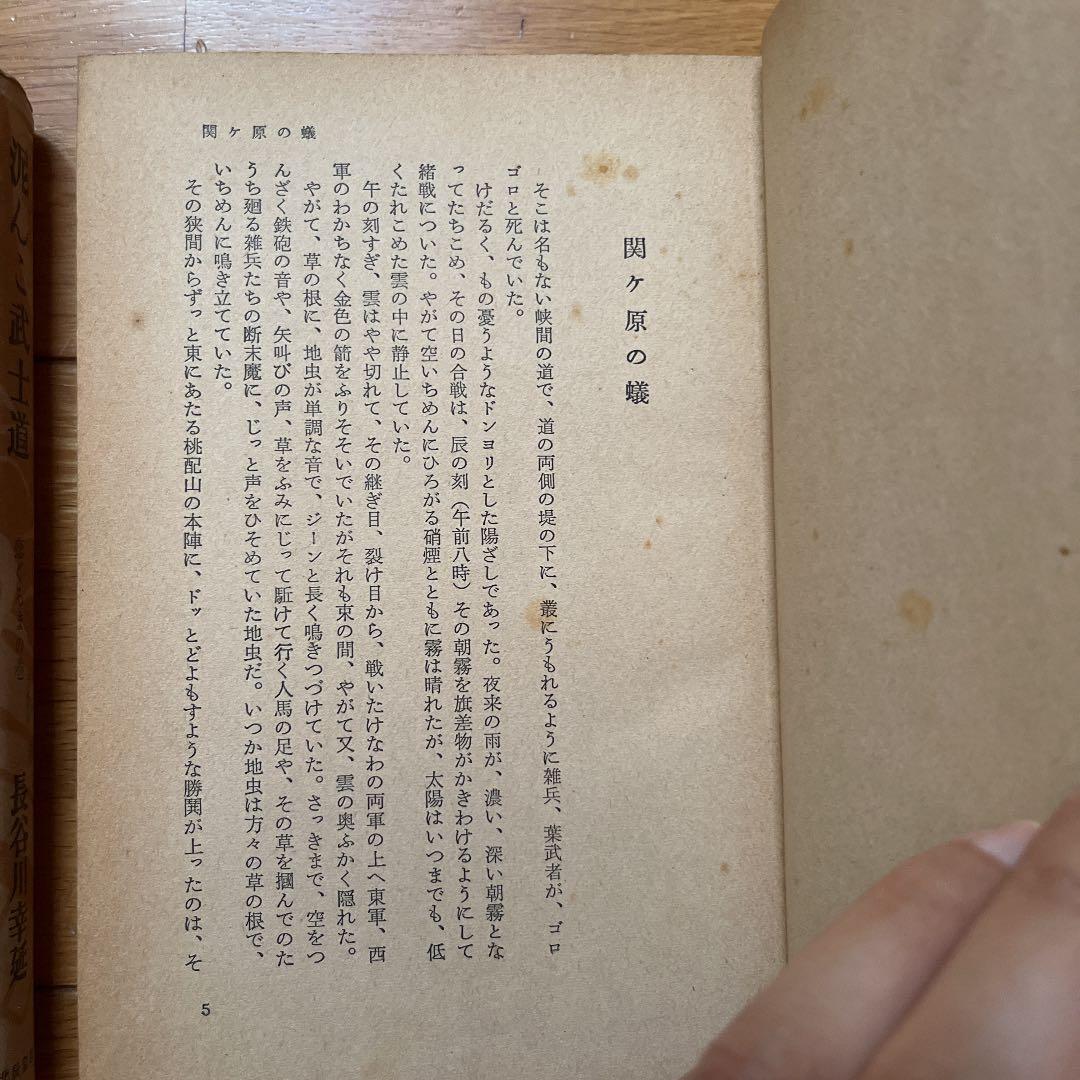 関ヶ原の蟻
関ヶ原の蟻
そこは名もない峡間の道で、道の両側の堤の下に、叢にうもれるように雑兵、葉武者が、ゴロ
ゴロと死んでいた。
けだるく、もの憂うようなドンヨリとした陽ざしであった。夜来の雨が、濃い、深い朝霧とな
ってたちこめ、その日の合戦は、辰の刻（午前八時）その朝霧を旗差物がかきわけるようにして
緒戦についた。やがて空いちめんにひろがる硝煙とともに霧は晴れたが、太陽はいつまでも、低
くたれこめた雲の中に静止していた。
午の刻すぎ、雲はやや切れて、その継ぎ目、裂け目から、戦いたけなわの両軍の上へ東軍、西
軍のわかちなく金色の箭をふりそそいでいたがそれも束の間、やがて又、雲の奥ふかく隠れた。
やがて、草の根に、地虫が単調な音で、ジーンと長く鳴きつづけていた。さっきまで、空をつ
んざく鉄砲の音や、矢叫びの声、草をふみにじって駈けて行く人馬の足や、その草を摑んでのた
うち廻る雑兵たちの断末魔に、じっと声をひそめていた地虫だ。いつか地虫は方々の草の根で、
いちめんに鳴き立てていた。
その狭間からずっと東にあたる桃配山の本陣に、ドッとどよもすような勝鬨が上ったのは、そ
5
泥んこ武士道
長谷川幸延